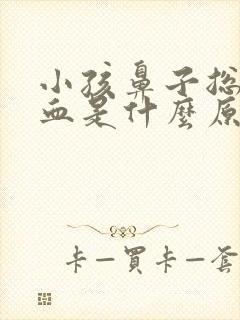 小孩鼻子总
血是什麼原
卡一買卡一套